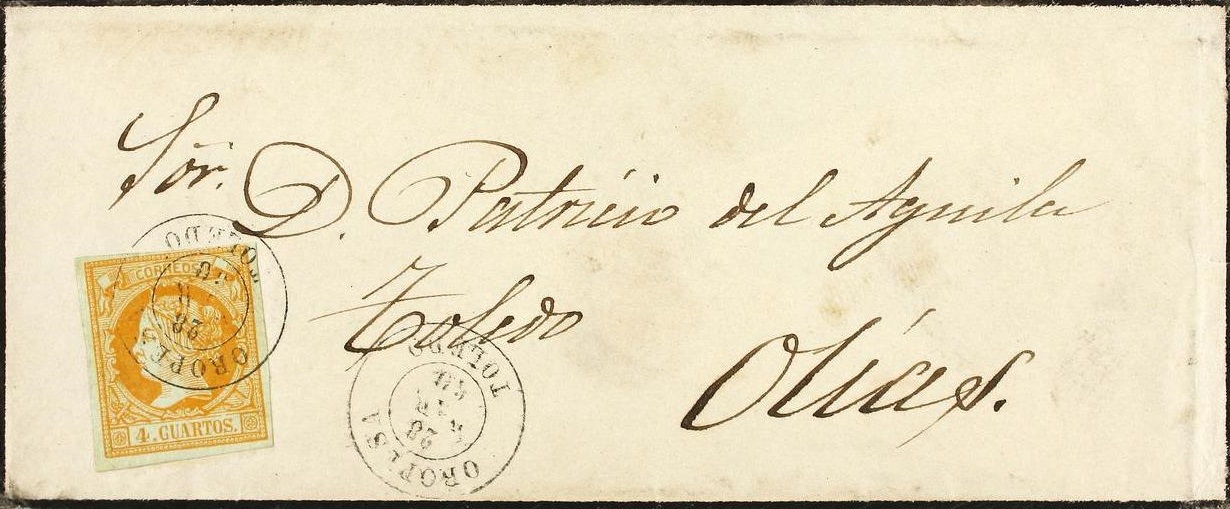 Sor. D. Patricio del Aguila
Toledo
Olías.
CORREOS
4. CUARTOS.
TOLEDO
28
OROPESA
TOLEDO
28
OROPESA